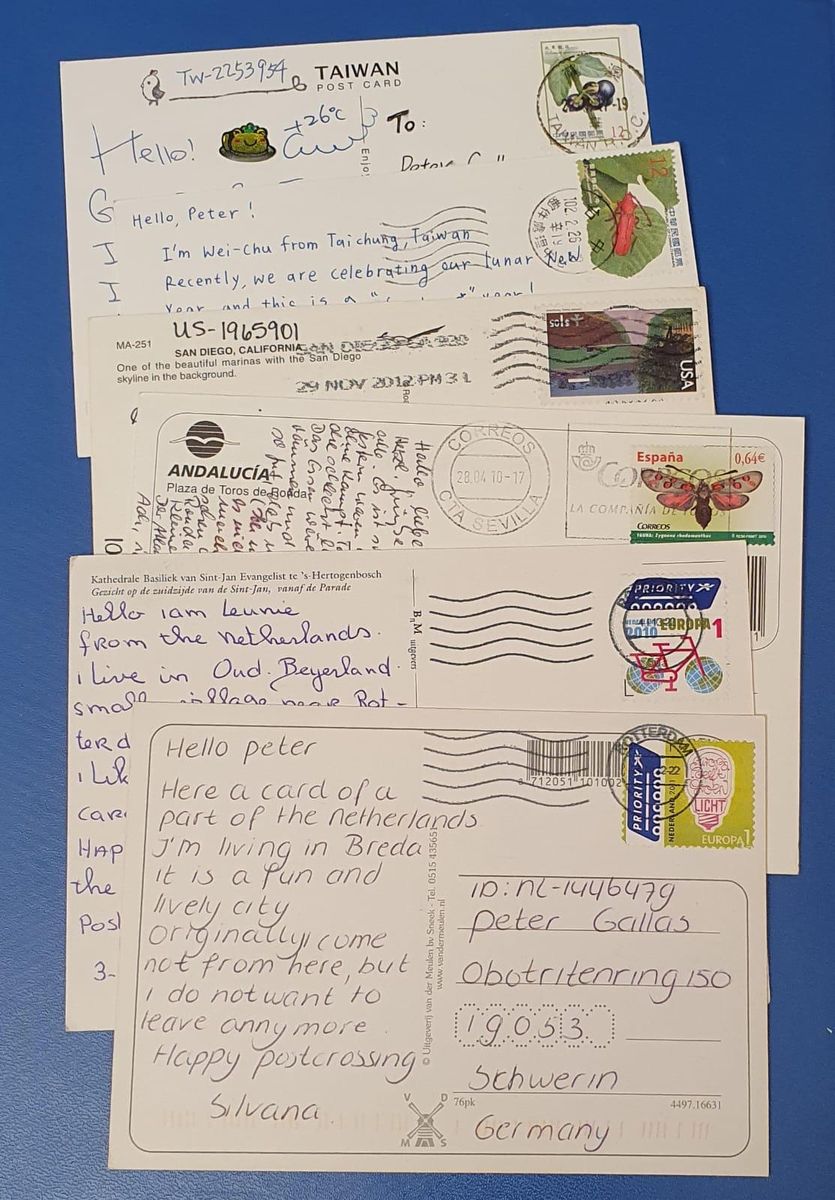 TW-2253954
TAIWAN
POST CARD
Hello!
+26°C
Enjoy
To:
12
G
I
I
Hello, Peter!
I'm Wei-Chu from Taichung, Taiwan
Recently, we are celebrating our lunar New
Year and this is a
102.2.26
12
中華民國郵票
MA-251
US-1965901
SAN DIEGO, CALIFORNIA
One of the beautiful marinas with the San Diego
skyline in the background.
29 NOV 2012 PM 3 L
USA
ANDALUCÍA
Plaza de Toros de Ronda
Hallo liebe
CORREOS
28.04.10-17
CTA SEVILLA
CORREOS
LA COMPAÑÍA DE
España
0,64€
CORREOS
FAUNA: Zygaena rhadamanthus
Kathedrale Basiliek van Sint-Jan Evangelist te 's-Hertogenbosch
Gezicht op de zuidzijde van de Sint-Jan, vanaf de Parade
Hello iam Leunie
from the netherlands.
i Live in Oud. Beyerland.
small village near Rot-
terd
i Lik
car
HAP
the
Post
3-
BnM uitgevers
PRIORITY
2010 EUROPA 1
Hello peter
Here a card of a
part of the netherlands
I'm living in Breda
it is a fun and
lively city
Originally i come
not from here, but
i do not want to
leave anny more.
Happy postcrossing
Silvana.
© Uitgeverij van der Meulen bv Sneek - Tel. 0515 435651
www.vandermeulen.nl
8 712051 101002
ROTTERDAM
PRIORITY
NEDERLAND 2011
LICHT
EUROPA 1
ID: NL-1446479
Peter Gallas
Obotritenring 150
19053
Schwerin
Germany
V D
M S
76pk
4497.16631